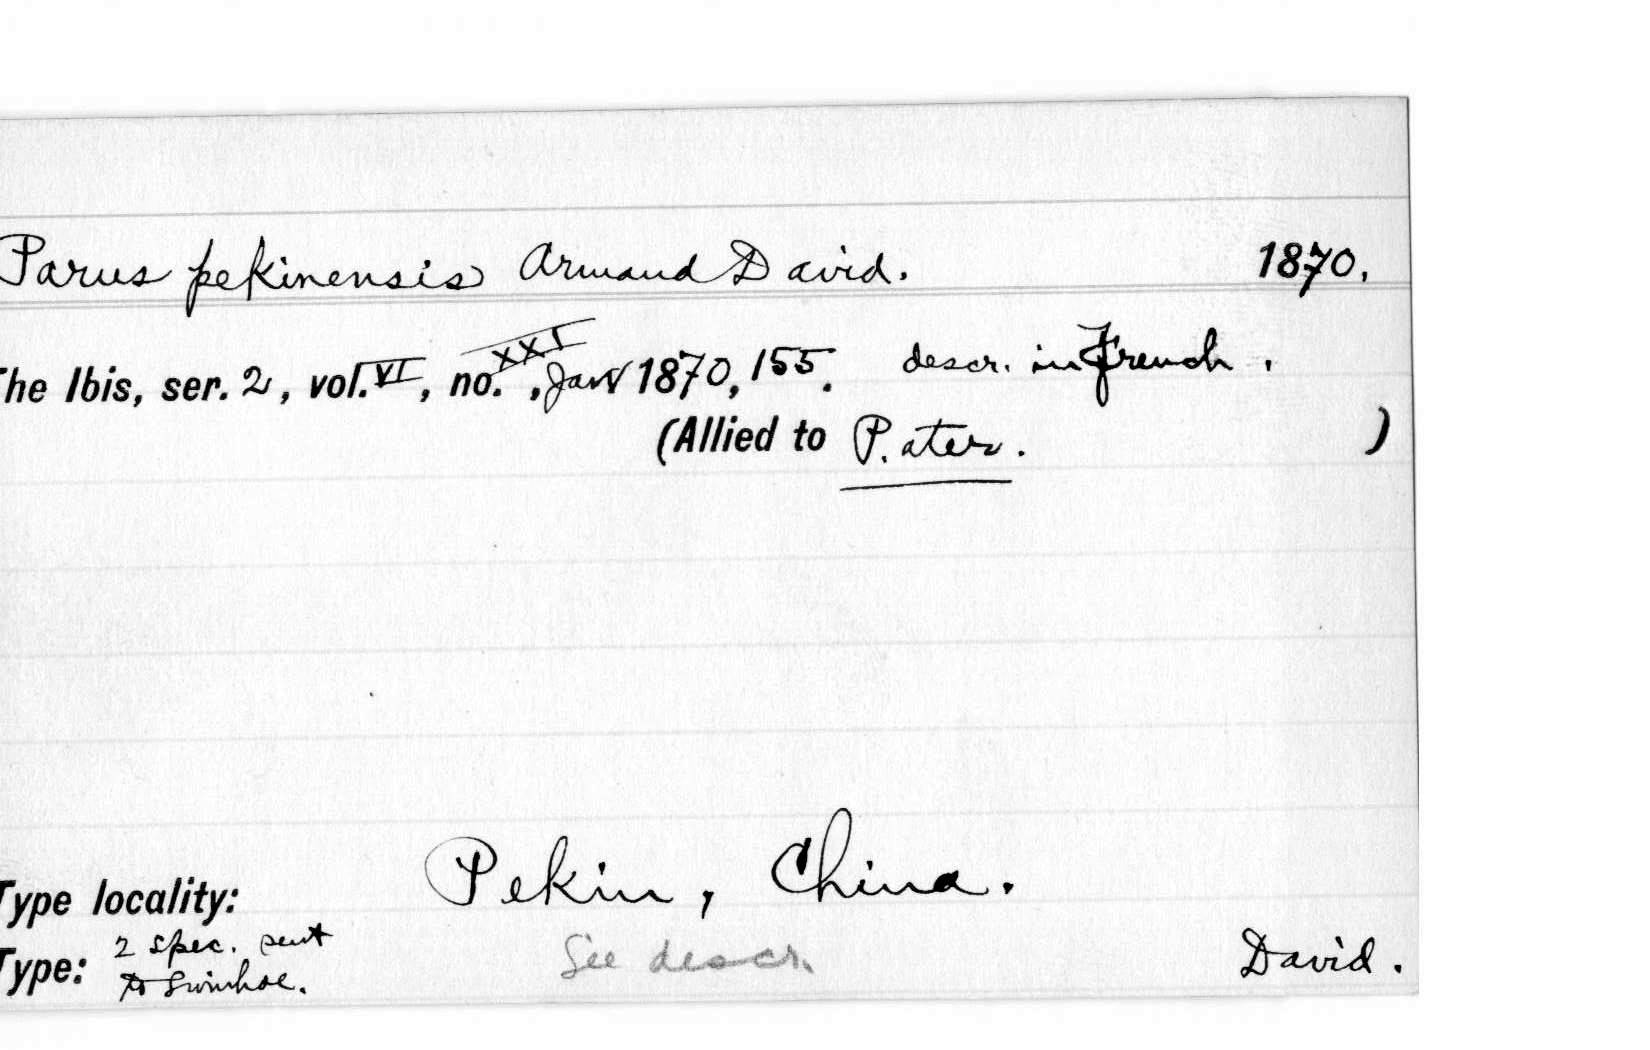 Parus pekinensis Armand David. 1870.
The Ibis, ser. 2, vol. VI, no. XXI, Jan 1870, 155. descr. in French.
(Allied to P. ater. )
Type locality: Pekin, China.
Type: 2 spec. sent to Swinhoe. See descr. David.